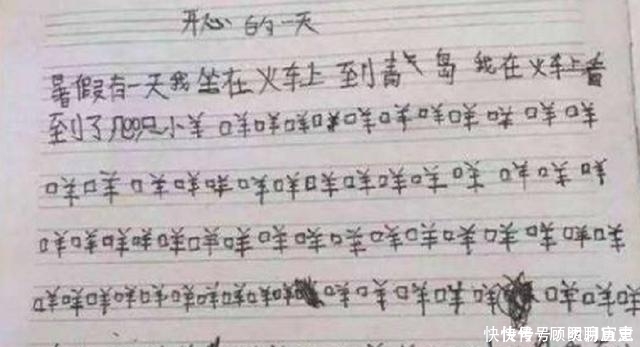 开心的一天
暑假有一天我坐在火车上到青岛我在火车上看
到了几只小羊咩咩咩咩咩咩咩咩咩咩咩
咩咩咩咩咩咩咩咩咩咩咩咩咩咩咩
咩咩咩咩咩咩咩咩咩咩咩咩咩咩咩咩咩
咩咩咩咩咩咩咩咩咩咩咩咩咩咩咩咩咩咩